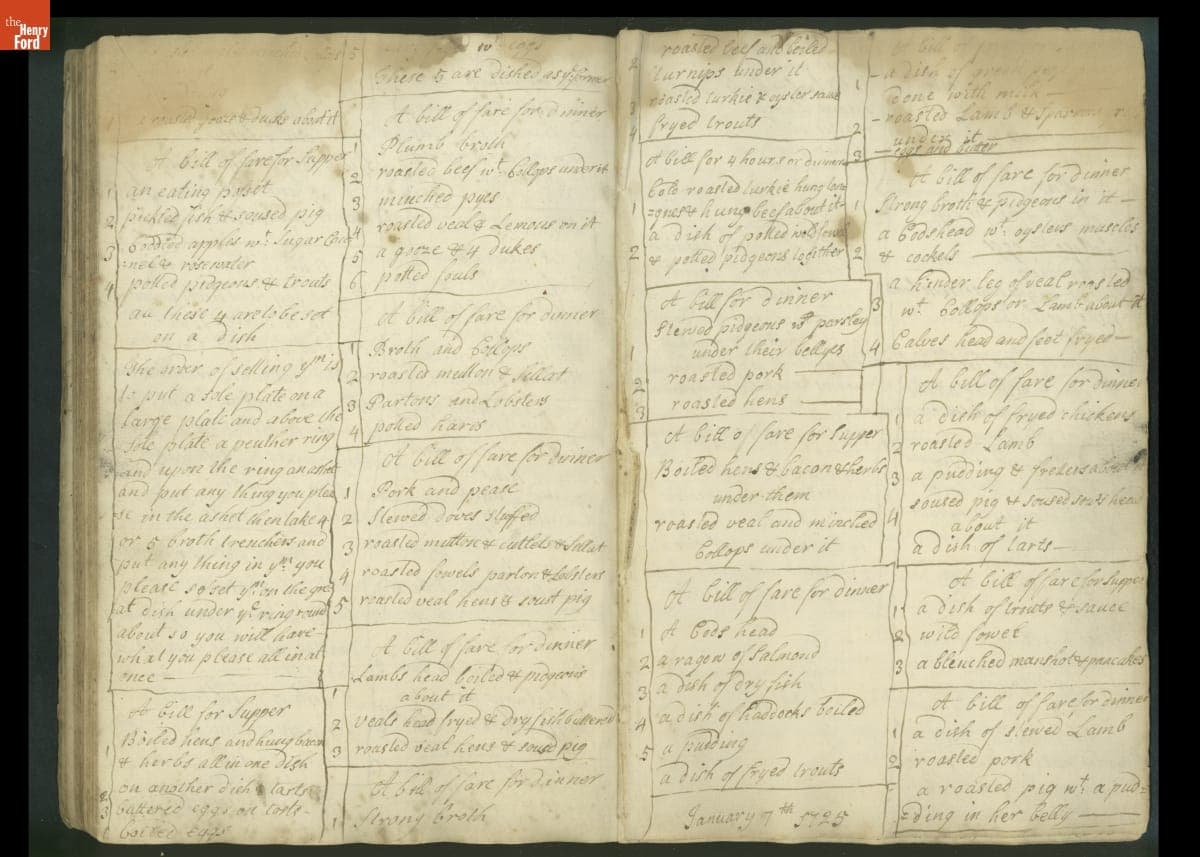 the
Henry
Ford
5
a roasted gooze & duks about it
A bill of fare for Supper
1 an eating posset
2 pickled fish & soused pig
3 coddled apples wt. Sugar Cine
=nel & rosewater
4 potted pidgeons & trouts
all these 4 are to be set
on a dish
The order of setting ym is
to put a sole plate on a
large platt and above the
sole plate a peuther ring
and upon the ring an ashet
and put any thing you plea
se in the ashet then take 4
or 5 broth trenchers and
put any thing in ym you
please so set ym on the gre
at dish under ye ring round
about so you will have
what you please all in at
once —
A bill for Supper
1 Boiled hens and hung bacon
& herbs all in one dish
2 on another dish tarts
3 buttered eggs on torts -
boiled Eggs
wt eggs
these 5 are dished as ye former
A bill of fare for dinner
1 Plumb broth
2 roasted beef wt. Collops under it
3 minched pyes
4 roasted veal & Lemons on it
5 a gooze & 4 dukes
6 potted fouls
A bill of fare for dinner
1 Broth and Collops
2 roasted mutton & Sillat
3 Partons and Lobsters
4 potted hares
A bill of fare for dinner
1 Pork and pease
2 Stewed doves stuffed
3 roasted mutton & cutlets & Sillat
4 roasted fowels parton & Lobsters
5 roasted veal hens & soust pig
A bill of fare for dinner
1 Lambs head boiled & pidgeons
about it
2 veals head fryed & dry fish buttered
3 roasted veal hens & soused pig
A bill of fare for dinner
1 Strong broth
2 roasted beef and boiled
turnips under it
3 roasted turkie & oyster saus
4 fryed trouts
A bill for 4 hours or dinner
1 Cold roasted turkie hung ton
=gues & hung beef about it-
2 a dish of potted wild fowls
& potted pidgeons togither
A bill for dinner
1 Stewed pidgeons wt parsley
under their bellyes
2 roasted pork —
3 roasted hens —
A bill of fare for Supper
Boiled hens & bacon & herbs
under them
roasted veal and minched
Collops under it
A bill of fare for dinner
1 A Cods head
2 a ragow of Salmond
3 a dish of dry fish
4 a dish of haddocks boiled
5 a pudding
a dish of fryed trouts
January 7th 1725
A bill of
1 - a dish of green
done with milk —
2 - roasted Lamb &
under it
3 - eggs and butter
A bill of fare for dinner
1 Strong broth & pidgeons in it —
2 a Codshead wt. oysters muscles
& cockels —
3 a hinder leg of veal roasted
wt. Collops or Lamb about it
4 Calves head and feet fryed —
A bill of fare for dinner
1 a dish of fryed chickens
2 roasted Lamb
3 a pudding & freters about it
4 soused pig & soused head
about it
a dish of tarts —
A bill of fare for Supper
1 a dish of trouts & sauce
2 wild fowel
3 a blenched manshot & pancakes
A bill of fare for dinner
1 a dish of stewed Lamb
2 roasted pork
a roasted pig wt. a pud=
=ding in her belly —